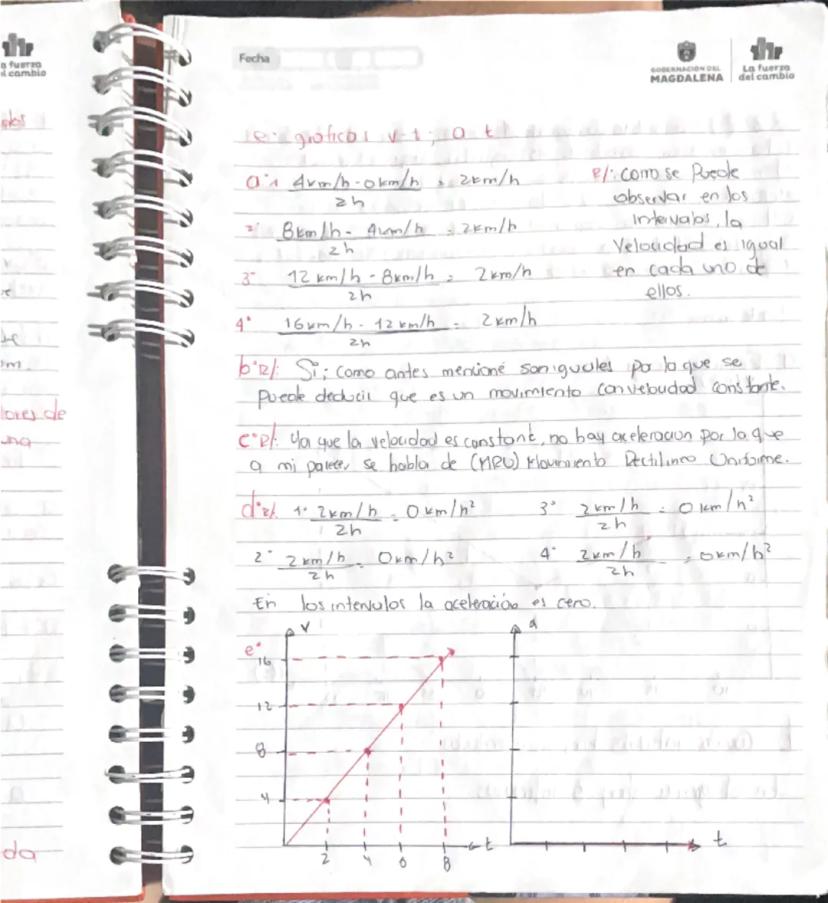 la fuerza
del cambio
Fecha
GOBERNACIÓN DEL
MAGDALENA
La fuerza
del cambio
e: graficos v-t; a t
a°1 4km/h - 0km/h = 2km/h
2h
2° 8km/h - 4km/h = 2km/h
2h
3° 12km/h - 8km/h = 2km/h
2h
4° 16km/h - 12km/h = 2km/h
2h
R/: como se Puede
observar en los
intervalos, la
Velocidad es igual
en cada uno de
ellos.
b°R/: Si; como antes mencioné son iguales por lo que se
Puede deducir que es un movimiento con velocidad constante.
c°R/: Ya que la velocidad es constant, no hay aceleracion por lo que
a mi parecer se habla de (MRU) Movimiento Rectilineo Uniforme.
d°R/. 1° 2km/h = 0km/h²
2h
3° 2km/h = 0km/h²
2h
2° 2km/h = 0km/h²
2h
4° 2km/h = 0km/h²
2h
En los intervulos la aceleración es cero.
e°
v
16
12
8
4
2 4 6 8
t
a
t
lores de
una
da